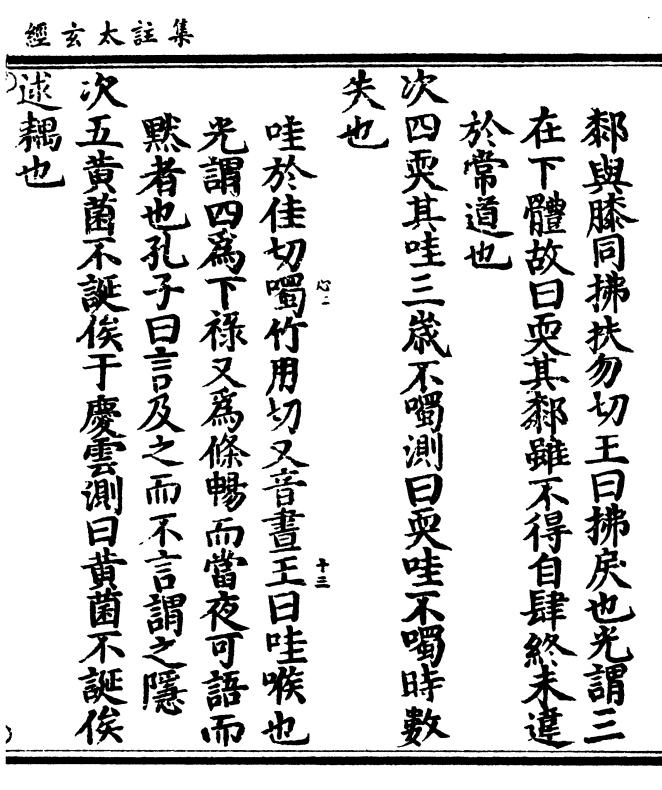 集註太玄經
䣛與膝同拂扶勿切王曰拂戾也光謂三
在下體故曰耎其䣛雖不得自肆終未違
於常道也
次四耎其哇三歲不噣測曰耎哇不噣時數
失也
哇於佳切噣竹用切又音晝王曰哇喉也
心二
十三
光謂四爲下祿又爲條暢而當夜可語而
默者也孔子曰言及之而不言謂之隱
次五黃菌不誕俟于慶雲測曰黃菌不誕俟
逑耦也